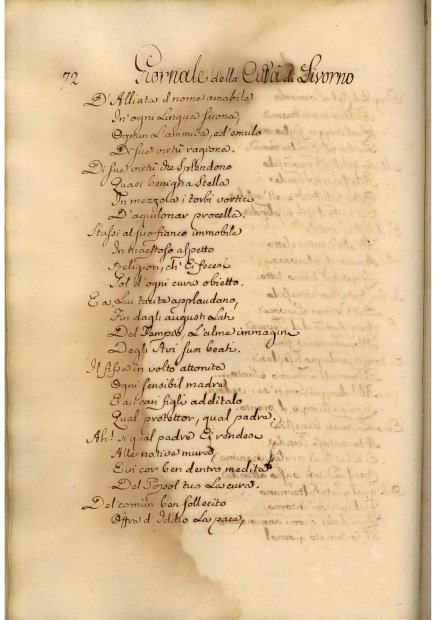 72 Giornale della Città di Livorno
D'Alliata il nome amabile
In ogni Lingua suona,
Ognun L'ammira, ed emulo
Di sue virtù ragiona.
Di sue virtù che Splendono
Quasi benigna Stella
In mezzo a i torbi vortici
D'aquilonar procella.
Stassi al suo fianco immobile
In maestoso aspetto
Religion, ch'Ei fecesi
Sol d'ogni cura obietto.
E a Lui tacite applaudano,
Fin dagli augusti Lati
Del Tempio, L'alme immagini
Degli Avi suoi beati.
Il fissa in volto attonita
Ogni sensibil madre
E a i cari figli additalo
Qual protettor, qual padre.
Ah! si qual padre Ei rendesi
Alle native mura,
E in cor ben dentro medita
Del Popol tuo La cura.
Del comun ben sollecito
Offra d'Iddio La pace,